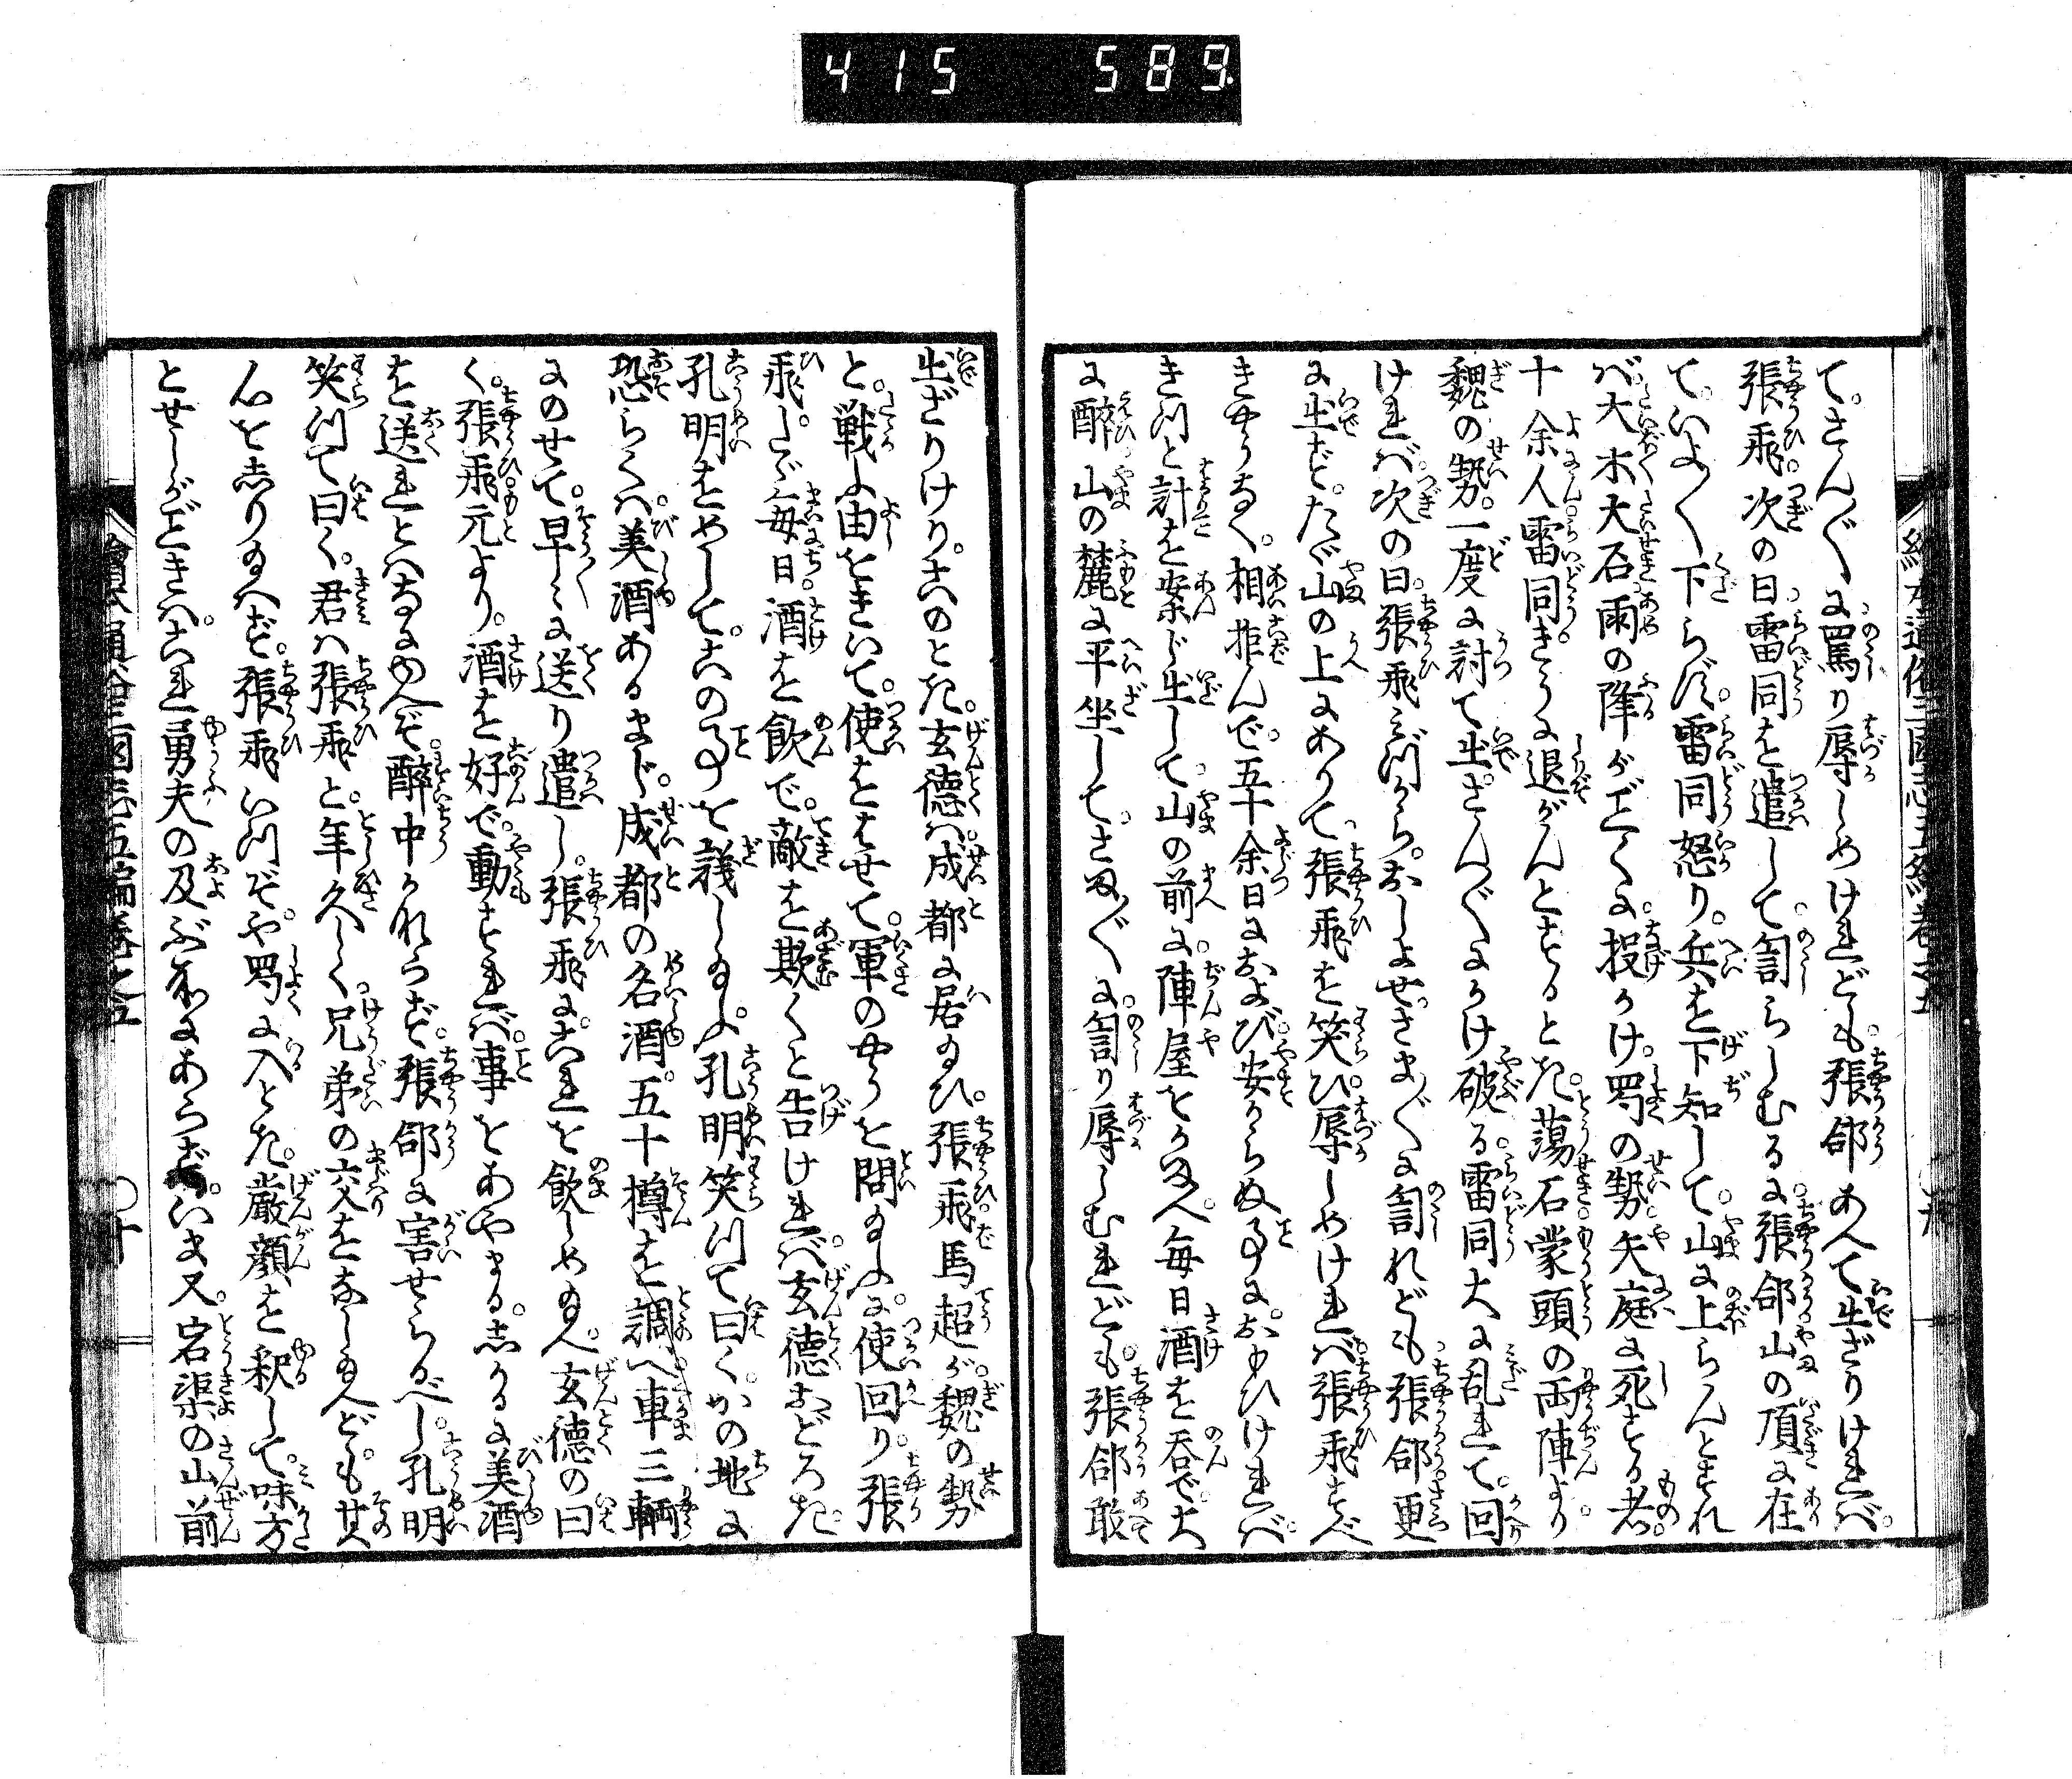 415 589
繪本通俗三國志五編卷之五
てさん〲に罵り辱しめけれども。張郃あへて出ざりけれバ。
張飛。次の日雷同を遣して。罰らしむるに。張郃山の頂に在
て。いよ〱下らず。雷同怒り。兵を下知して。山に上らんとすれ
バ大木大石雨の降がごとくに。投かけ。蜀の勢。矢庭に死する者。
十余人雷同きうに退がんとするとき。蕩石蒙頭の両陣より。
魏の勢。一度に討て出。さん〲にかけ破る。雷同大に乱れて。回
けれバ。次の日。張飛ミづから。おしよせ。さま〲に罰れども。張郃更
に出ず。たゞ山の上にありて。張飛を笑ひ。辱しめけれバ。張飛すべ
きやうなく。相拒んで。五十余日におよび。安からぬ事に。おもひけれバ。
きつと計を案じ出して。山の前に。陣屋をかまへ。毎日酒を呑で。大
に醉。山の麓に平坐して。さま〲に。罰り辱しむれども。張郃敢
出ざりけり。このとき。玄德ハ。成都に居給ひ。張飛。馬超が。魏の勢
と。戰ふ由をきいて。使をはせて。軍のやうを問給ふに。使回り。張
飛。たゞ毎日。酒を飲で。敵を欺くと告けれバ。玄德おどろき。
孔明をめして。この事を議し給ふ。孔明笑つて曰く。かの地に
恐らくハ。美酒あるまじ。成都の名酒。五十樽を調へ。車三輛
にのせて。早〻に送り遣し。張飛に。これを飲しめ給へ。玄德の曰
く。張飛元より。酒を好で。動すれバ。事をあやまる。しかるに美酒
を送れとハなにゆへぞ。醉中かれらず。張郃に害せらるべし。孔明
笑つて曰く。君ハ張飛と。年久しく。兄弟の交をなし給へども。其
心をしり給へず。張飛いつぞや。蜀に入とき。嚴顔を釈して。味方
とせしがごときハ。これ勇夫の及ぶ所にあらず。いま又。宕渠の山前
繪本通俗三國志五編卷之五 〇十